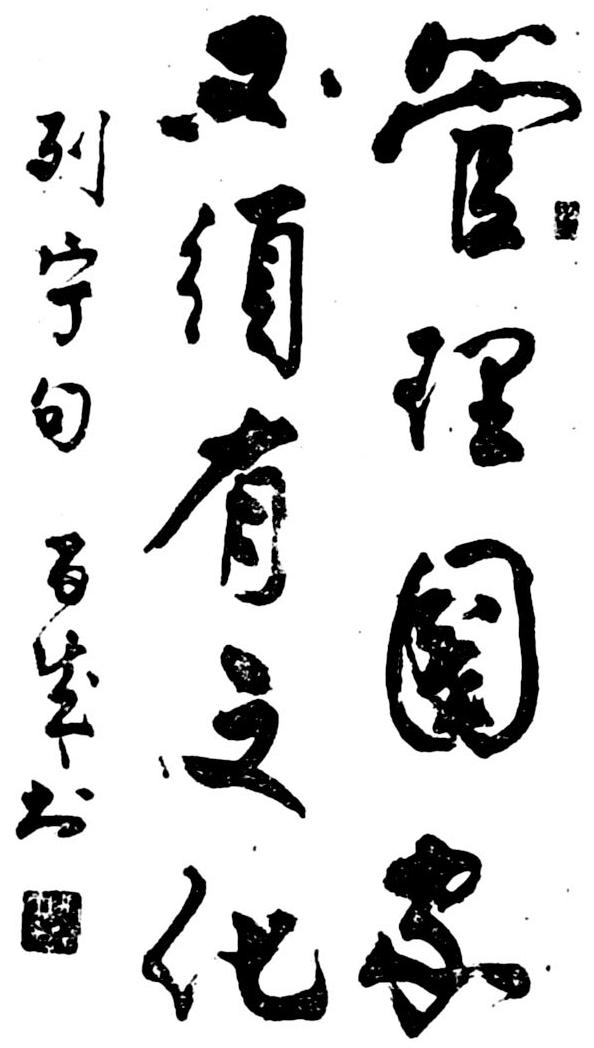 管理國家
必須有文化
列宁句 书